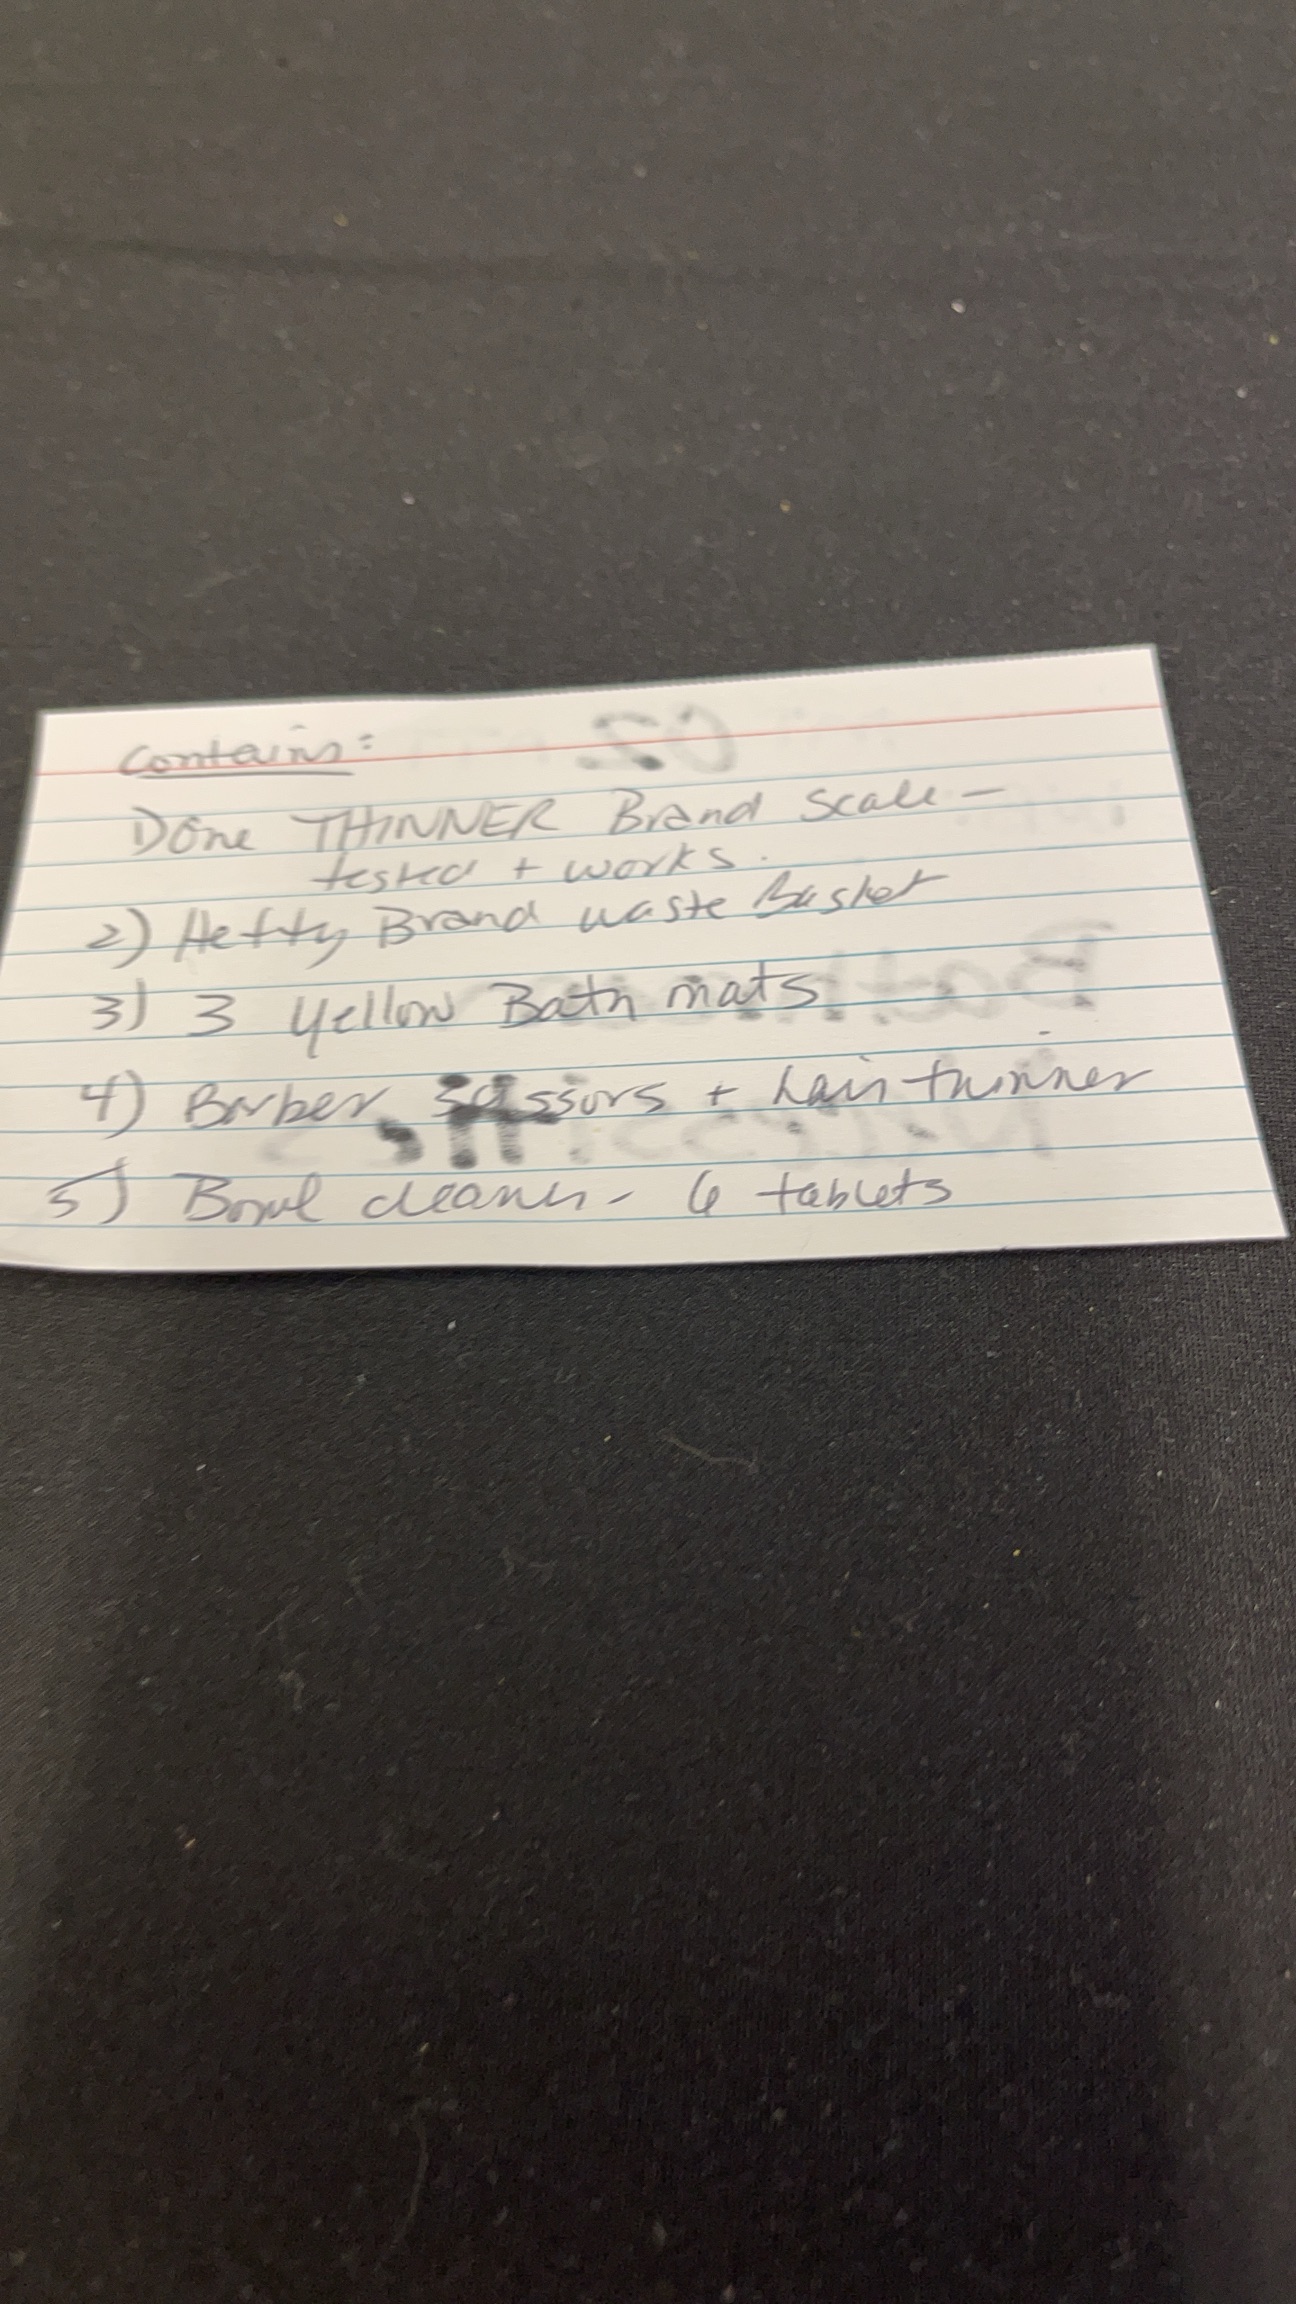 Contains:
1) One THINNER Brand Scale -
tested + works.
2) Hefty Brand waste Basket
3) 3 Yellow Bath mats
4) Barber scissors + hair thinner
5) Bowl cleaner - 6 tablets